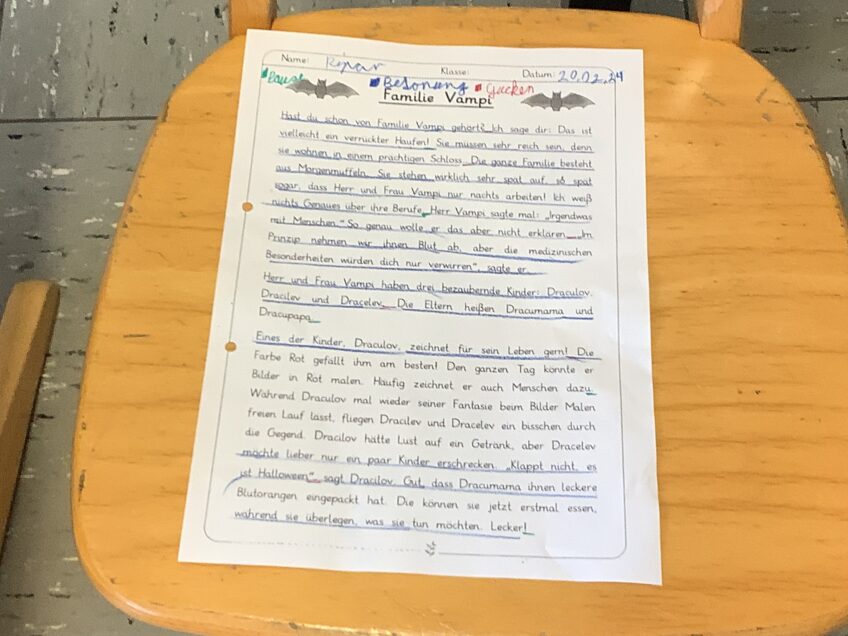 Name: Klasse: Datum: 20.02.24
Pause Betonung Gucken
Familie Vampi
Hast du schon von Familie Vampi gehört? Ich sage dir: Das ist
vielleicht ein verrückter Haufen! Sie müssen sehr reich sein, denn
sie wohnen in einem prächtigen Schloss. Die ganze Familie besteht
aus Morgenmuffeln. Sie stehen wirklich sehr spät auf, so spät
sogar, dass Herr und Frau Vampi nur nachts arbeiten! Ich weiß
nichts Genaues über ihre Berufe. Herr Vampi sagte mal: „Irgendwas
mit Menschen." So genau wolle er das aber nicht erklären. „Im
Prinzip nehmen wir ihnen Blut ab, aber die medizinischen
Besonderheiten würden dich nur verwirren", sagte er.
Herr und Frau Vampi haben drei bezaubernde Kinder: Draculov,
Dracilev und Dracelev. Die Eltern heißen Dracumama und
Dracupapa.
Eines der Kinder, Draculov, zeichnet für sein Leben gern! Die
Farbe Rot gefällt ihm am besten! Den ganzen Tag könnte er
Bilder in Rot malen. Häufig zeichnet er auch Menschen dazu.
Während Draculov mal wieder seiner Fantasie beim Bilder Malen
freien Lauf lässt, fliegen Dracilev und Dracelev ein bisschen durch
die Gegend. Dracilov hätte Lust auf ein Getränk, aber Dracelev
möchte lieber nur ein paar Kinder erschrecken. „Klappt nicht, es
ist Halloween", sagt Dracilov. Gut, dass Dracumama ihnen leckere
Blutorangen eingepackt hat. Die können sie jetzt erstmal essen,
während sie überlegen, was sie tun möchten. Lecker!